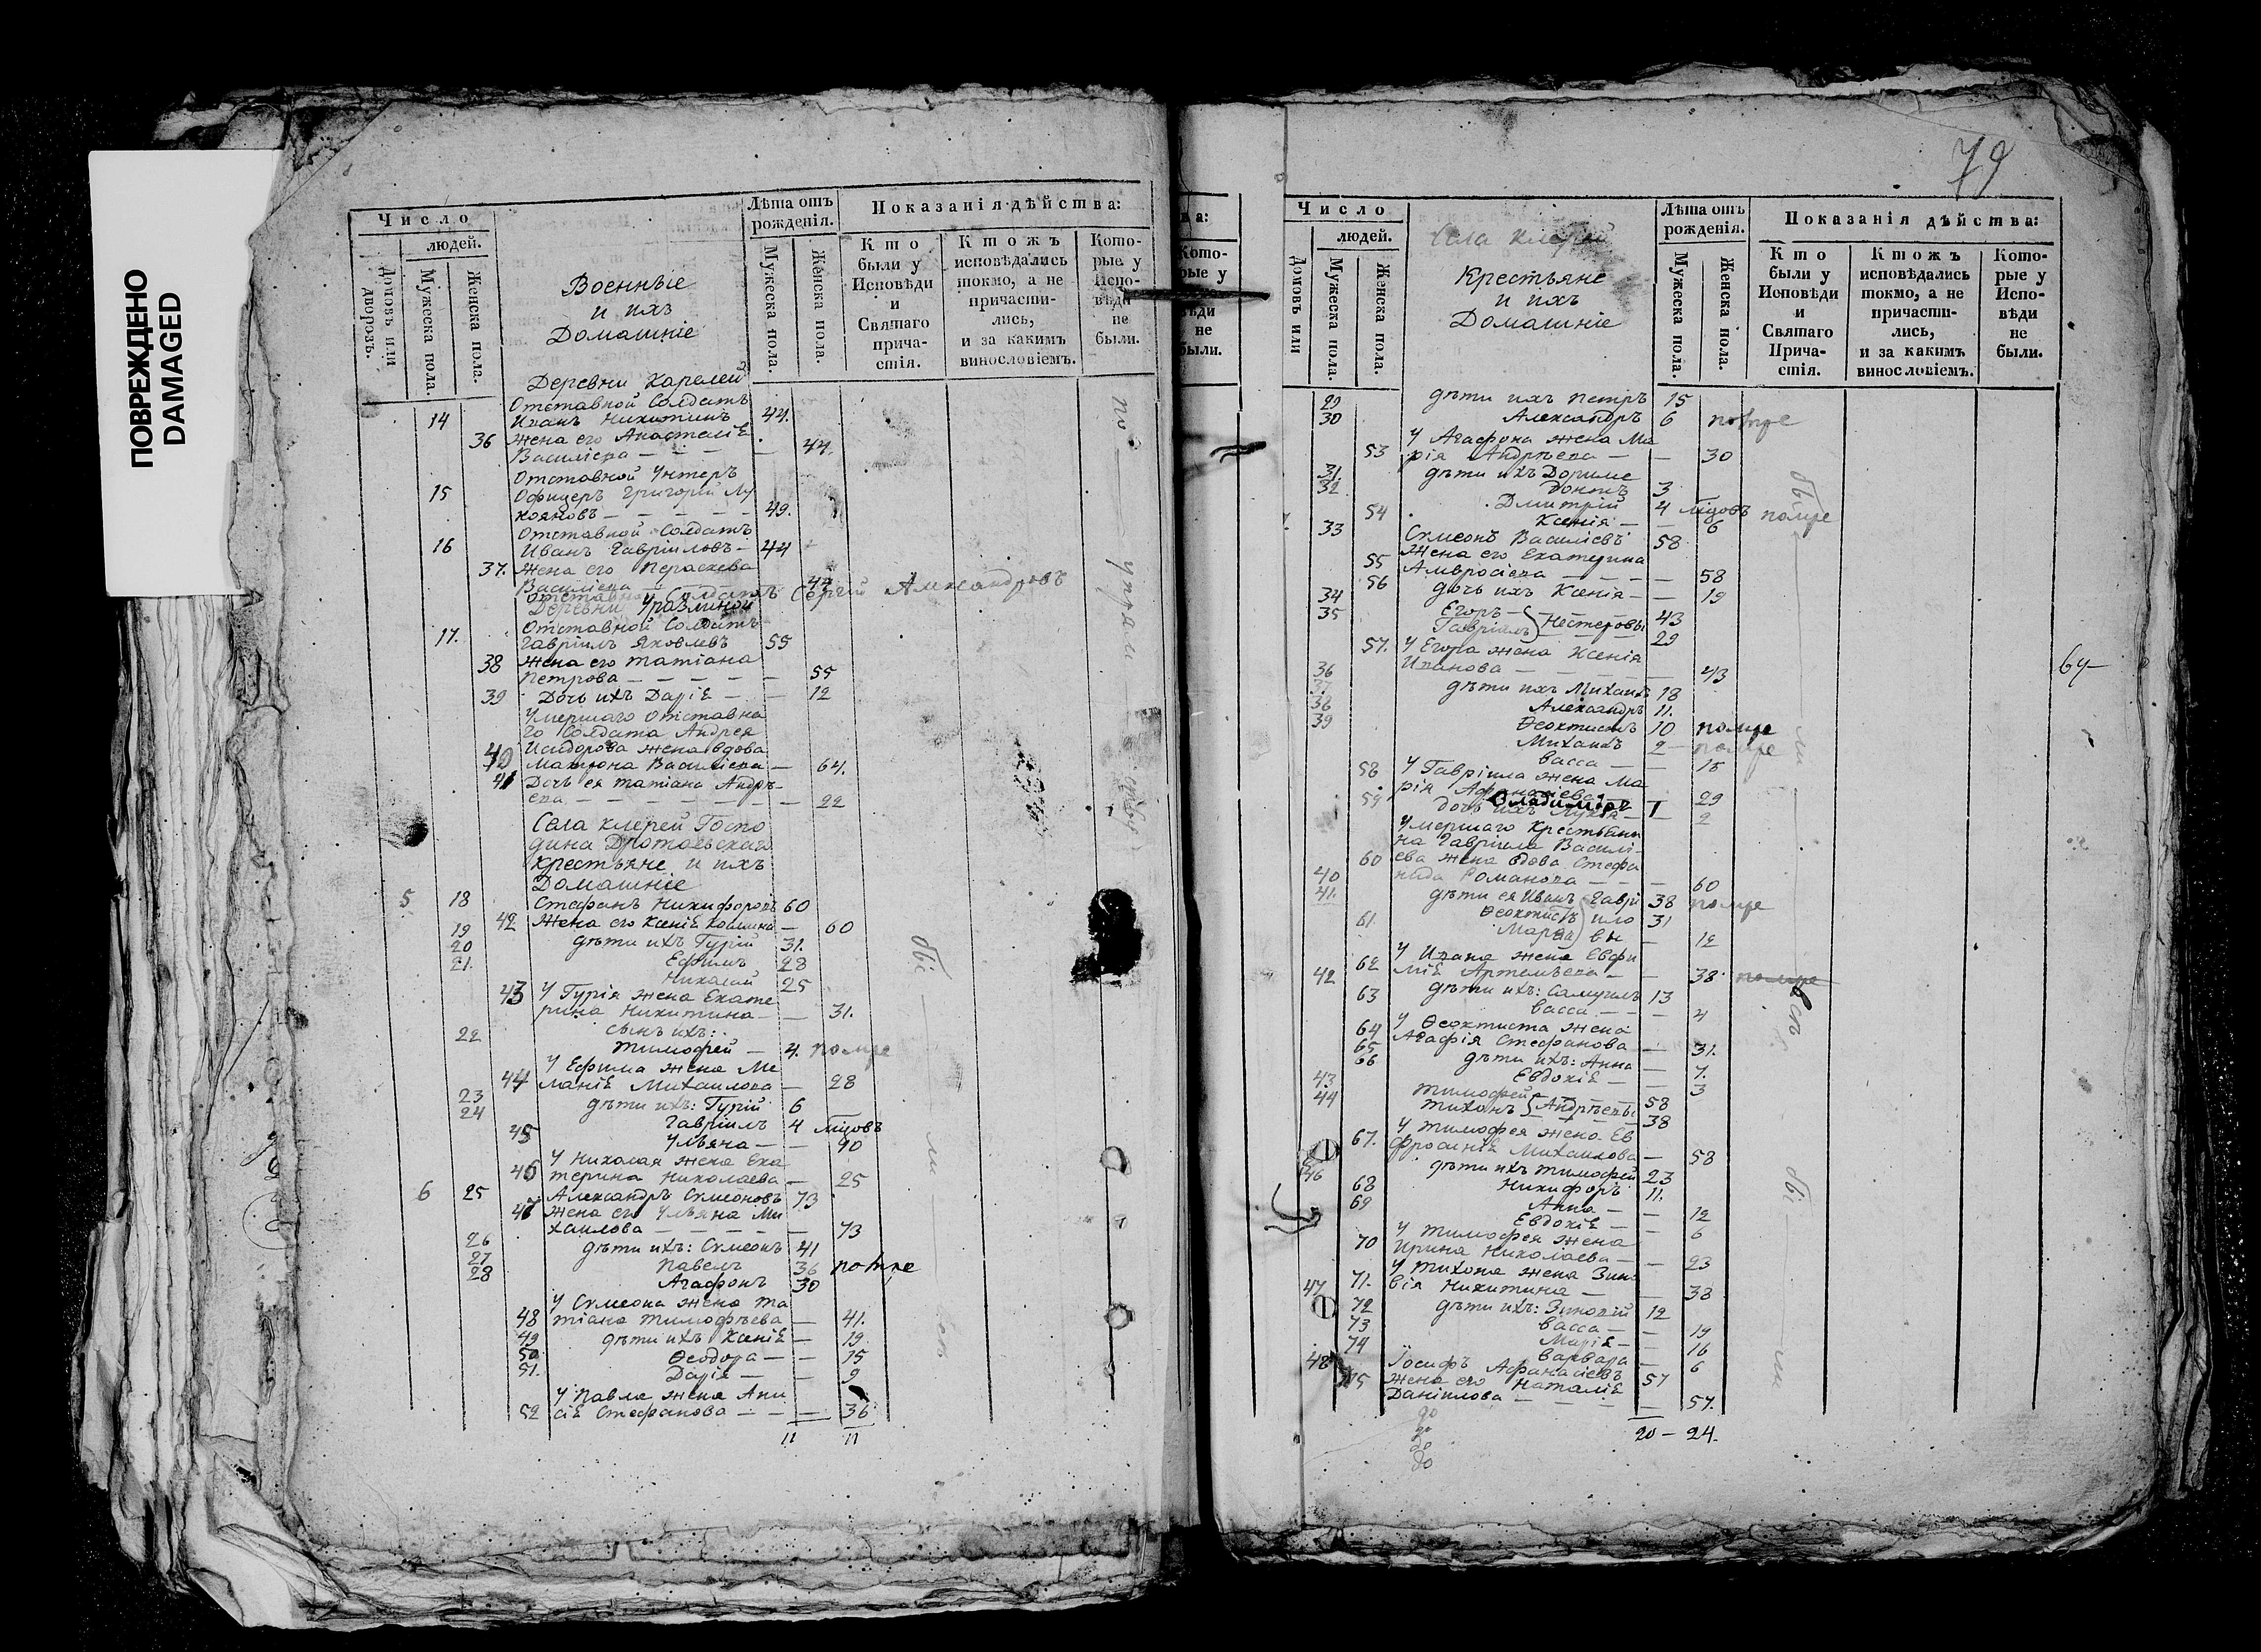 ПОВРЕЖДЕНО
DAMAGED
Число
людей.
Домовъ или дворовъ.
Мужеска пола.
Женска пола.
Военные
и ихъ
Домашніе
Лѣта отъ рожденія.
Мужеска пола.
Женска пола.
Показанія дѣйства:
Кто были у Исповѣди и Святаго причастія.
Ктожъ исповѣдались токмо, а не причастились, и за какимъ винословіемъ.
Которые у Исповѣди не были.
Деревни Карелей
Отставной Солдатъ
14 Иванъ Никитинъ 44.
36 жена его Анастасіѣ
Василіева — — — 44.
Отставной Унтеръ
15 Офицеръ Григорій Лу
кояновъ — — — — 49.
Отставной Солдатъ
16 Иванъ Гавріиловъ — 44
37. жена его Параскева
Василіева 44
Отставной Солдатъ Сергій Александровъ
Деревни Уразлиной
Отставной Солдатъ
17. Гавріилъ Яковлевъ 55
38 жена его Татіана
Петрова — — — — — 55
39 Дочь ихъ Даріѣ — — 12
Умершаго отставна
го Солдата Андрея
Исидорова жена вдова
40 Матрона Василіева — 64.
41 Дочь ея Татіана Андрѣ-
ева — — — — — — 22
Села клерей Госпо
дина
крестьяне и ихъ
Домашніе
5 18 Стефанъ Никифоровъ 60
42 Жена его Ксеніѣ Козмина — 60
19 дѣти ихъ Гурій 31.
20 Ефимъ 28
21. Николай 25
43 У Гурія жена Екате
рина Никитина — — 31.
22 сынъ ихъ:
Тимофей — 4. помре
У Ефима жена Ме
44 ланіѣ Михаилова — 28
23 дѣти ихъ: Гурій 6
24 Гавріилъ 4 мцовъ
45 Ульяна — — 90
У Николая жена Ека
46 терина Николаева — 25
6 25 Александръ Сумеоновъ 73
47 жена его Ульяна Ми
хаилова — — — — 73
26 дѣти ихъ: Сумеонъ 41
27 Павелъ 36 помре
28 Агафонъ 30
У Сумеона жена Та
48 тіана Тимофѣева — 41.
49 дѣти ихъ Ксеніѣ — 19.
50 Ѳеодора — — 15
51. Дарія — — 9
У Павла жена Ани
52 сіѣ Стефанова — — — 36
11 11
бы — ли — въ
79
Число
людей.
Домовъ или
Мужеска пола.
Женска пола.
Села клерей
Крестьяне
и ихъ
Домашніе
Лѣта отъ рожденія.
Мужеска пола.
Женска пола.
Показанія дѣйства:
Кто были у Исповѣди и Святаго Причастія.
Ктожъ исповѣдались токмо, а не причастились, и за какимъ винословіемъ.
Которые у Исповѣди не были.
29 дѣти ихъ Петръ 15
30 Александръ 6 помре
У Агафона жена Ма
53 рія Андрѣева — — 30
31. дѣти ихъ Дориме
32 донтъ 3
Дмитрій 4 мцовъ помре
54 Ксенія — — 6
33 Сумеонъ Василіевъ 58
жена его Екатерина
55 Амвросіева — — — — 58
56 дочь ихъ Ксенія — — 19
34 Егоръ — } Нестеровы 43
35 Гавріилъ 29
57. У Егора жена Ксенія
Иванова — — — — 43
36 дѣти ихъ Михаилъ 18
37 Александръ 11.
38 Ѳеоктистъ 10 помре
39 Михаилъ 2 — помре
Васса — — 15
58 У Гавріила жена Ма
рія Афанасіева — 29
Владиміръ 1
59 дочь ихъ — — 2
Умершаго крестьяни
на Гавріила Василі-
60 ева жена вдова Стефа
нида Романова — — — 60
40 дѣти ея Иванъ } Гаврі 38 помре
41. Ѳеоктистъ ило 31
61. Марѳа вы — 12
У Ивана жена Евфи
62 міѣ Артемьева — — 38 помре
42 дѣти ихъ: Самуилъ 13
63 Васса — — — 4
У Ѳеоктиста жена
64 Агафія Стефанова — 31.
65 дѣти ихъ: Анна — 7.
66 Евдокіѣ — — 3
43 Тимофей } Андрѣевы 58
44 Тихонъ 38
У Тимофея жена Ев
67. фросиніѣ Михаилова — 58
дѣти ихъ Тимофей 23
46 Никифоръ 11.
68 Анна — — 12
69 Евдокіѣ — — 6
У Тимофея жена
70 Ирина Николаева — — 23
У Тихона жена Зин-
71. вія Никитина — — 38
47 дѣти ихъ: Зиновій 12
72 Васса — — 19
73 Марія — — 16
74 Варвара — 6
48 Іосифъ Афанасіевъ 57
75 жена его Наталіѣ
Даніилова — — — — 57.
20 — 24.
бы — ли — въ
бы — ли
до
до
до
до
64 —